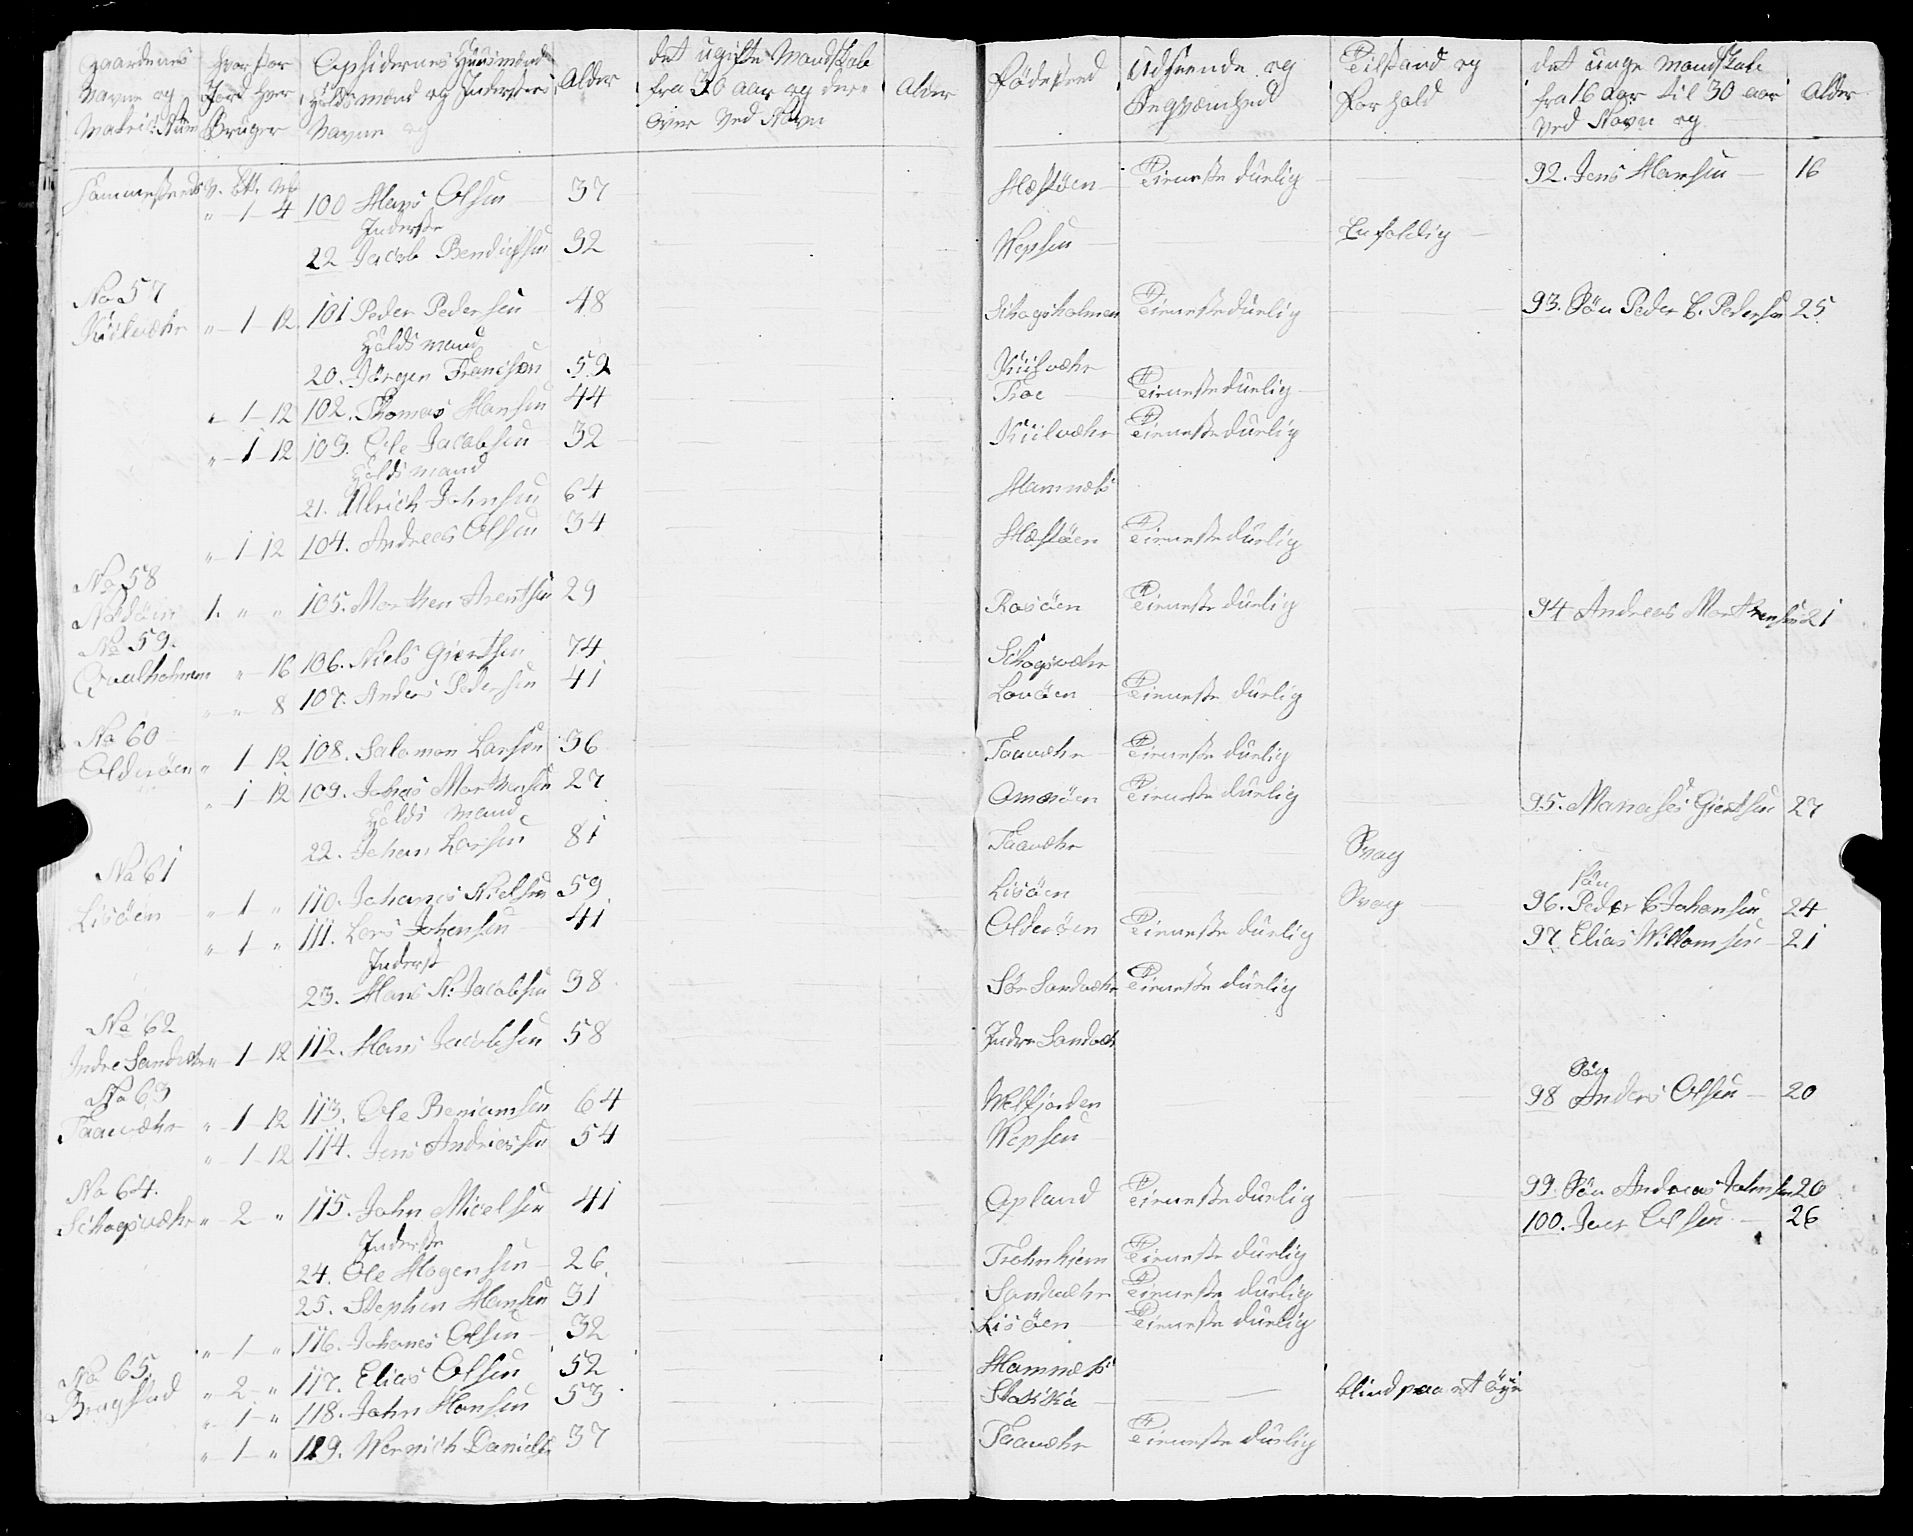 gaardenes Navne og Matric: Num
hvor stor Jord hver Bruger
Opsidernes Huusmænd Holdsmænd og Indersters Navne og
Alder
det ugifte Mandskab fra 30 aar og derover ved Navn
Alder
Fødested
Udseende og Begvæmhed
Tilstand og Forhold
det unge Mandskab fra 16 aar til 30 aar ved Navn og
Alder
Sammesteds V. Ptt. Mk
" 1 - 4 100 Hans Olsen 37 Hestøen Tieneste dürlig 92. Jens Hansen 16
Inderste
22 Jacob Bendigsen 32 Wepsen Enfoldig
No 57
Kiilwæhr " - 1 - 12 101 Peder Pedersen 48 Schogsholmen Tieneste dürlig 93. Søn Peder C. Pedersen 25
Holdsmand
20. Jörgen Francisen 52 Kiilwæhr
" 1 - 12 102. Thomas Hansen 44 Froe Tieneste dürlig
" - 1 - 12 103. Ole Jacobsen 32 Kiilwæhr Tieneste dürlig
Holdsmand
21. Ulrich Johnsen 64 Hamnæs
" 1 12 104. Andreas Olsen 34 Hestøen Tieneste dürlig
No 58
1. " " 105. Morthen Arentsen 29 Rosöen Tieneste dürlig 94 Andreas Morthensen 21
No 59.
Qvalholmen " - 16 106. Niels Giertsen 74 Schogswæhr
" " 8 107. Anders Pedersen 41 Lovöen Tieneste dürlig
No 60
Olderöen " 1 - 12 108. Salamon Larsen 36 Taawæhr Tieneste dürlig
" 1 12 109. Johas Morthensen 27 Omesöen Tieneste dürlig 95. Manases Giertsen 27
Holds mand
22. Johan Larsen 81 Taawæhr Svag
No 61
Søn
Lisöen " - 1 " 110. Johanes Nielsen 59 Lisöen Svag 96. Peder C Johansen 24
" 1 " 111. Lars Johensen 41 Olderöen Tieneste dürlig 97. Elias Willomsen 21
Inderst
23. Hans N: Jacobsen 38 Sör Sandwæhr Tieneste dürlig
No 62
Indre Sandwæhr " - 1 - 12 112. Hans Jacobsen 58 Indre Sandwæh
No 63
Søn
Taawæhr " - 1 - 12 113. Ole Beniamsen 64 Welfjorden 98 Anders Olsen 20
" - 1 - 12 114. Jens Andriassen 54 Wepsen
No 64.
Schogswæhr " - 2 - " 115. John Micelsen 41 Opland Tieneste dürlig 99. Søn Andreas Johnsen 20
100. Iver Olsen 26
Inderste
24. Ole Mogensen 26 Trohnhiem Tieneste dürlig
25. Stephen Hansen 31 Sandwæhr Tieneste dürlig
" - 1 - " 116. Johanes Olsen 32 Lisöen Tieneste dürlig
No 65.
Brogstad " - 2 - " 117. Elias Olsen 52 Hamnæs
" - 1 - " 118. John Hansen 53 Stokkå blind paa et öye
" - 1 - " 119. Wernich Daniels 37 Taawæhr Tieneste dürlig